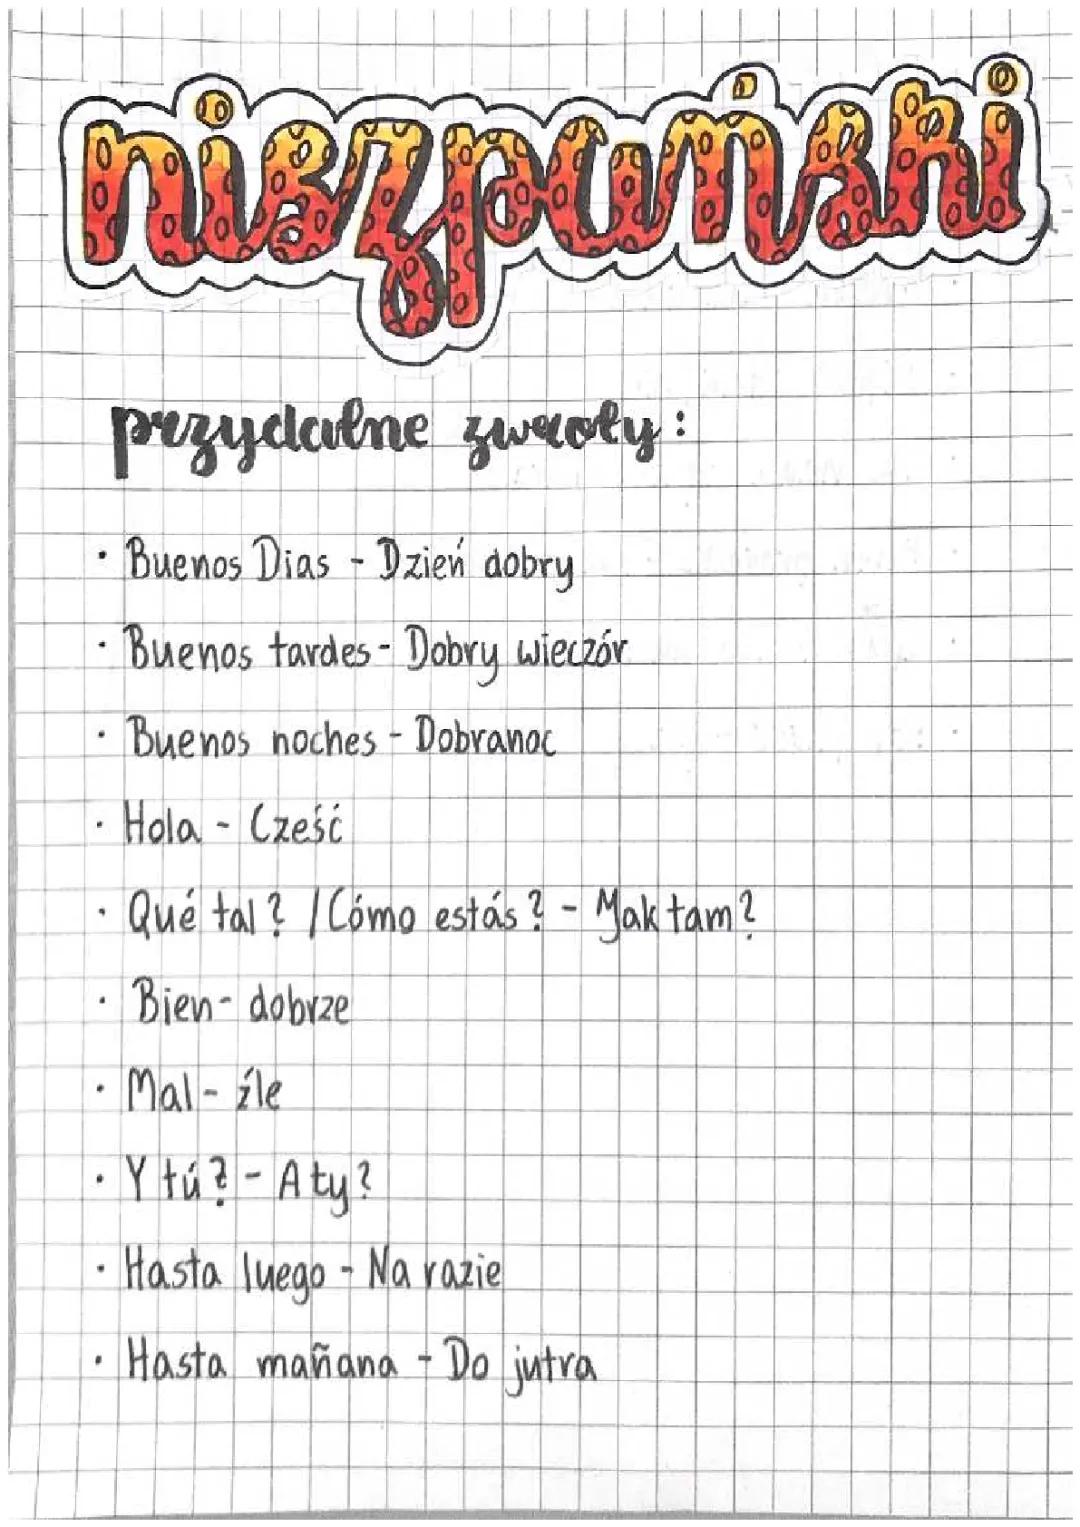 hiszpański
przydatne zwroty:
· Buenos Dias - Dzień dobry
· Buenos tardes - Dobry wieczór
· Buenos noches - Dobranoc
· Hola - Cześć
· Qué tal? / Cómo estás? - Jak tam?
· Bien - dobrze
· Mal - źle
· Y tú? - A ty?
· Hasta luego - Na razie
· Hasta mañana - Do jutra